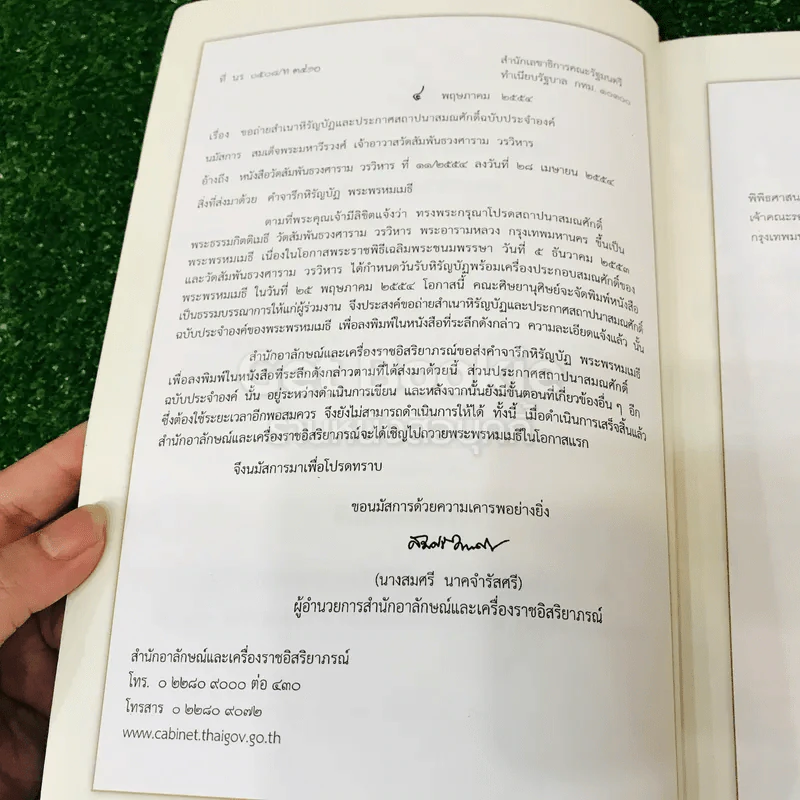 ที่ นร ๐๕๐๘/ท ๓๕๖๐
สำนักเลขาธิการคณะรัฐมนตรี
ทำเนียบรัฐบาล กทม. ๑๐๓๐๐
๔ พฤษภาคม ๒๕๕๔
เรื่อง ขอถ่ายสำเนาหิรัญบัฏและประกาศสถาปนาสมณศักดิ์ฉบับประจำองค์
นมัสการ สมเด็จพระมหาวีรวงศ์ เจ้าอาวาสวัดสัมพันธวงศาราม วรวิหาร
อ้างถึง หนังสือวัดสัมพันธวงศาราม วรวิหาร ที่ ๑๑/๒๕๕๔ ลงวันที่ ๒๘ เมษายน ๒๕๕๔
สิ่งที่ส่งมาด้วย คำจารึกหิรัญบัฏ พระพรหมเมธี
ตามที่พระคุณเจ้ามีลิขิตแจ้งว่า ทรงพระกรุณาโปรดสถาปนาสมณศักดิ์
พระธรรมกิตติเมธี วัดสัมพันธวงศาราม วรวิหาร พระอารามหลวง กรุงเทพมหานคร ขึ้นเป็น
พระพรหมเมธี เนื่องในโอกาสพระราชพิธีเฉลิมพระชนมพรรษา วันที่ ๕ ธันวาคม ๒๕๕๓
และวัดสัมพันธวงศาราม วรวิหาร ได้กำหนดวันรับหิรัญบัฏพร้อมเครื่องประกอบสมณศักดิ์ของ
พระพรหมเมธี ในวันที่ ๒๕ พฤษภาคม ๒๕๕๔ โอกาสนี้ คณะศิษยานุศิษย์จะจัดพิมพ์หนังสือ
เป็นธรรมบรรณาการให้แก่ผู้ร่วมงาน จึงประสงค์ขอถ่ายสำเนาหิรัญบัฏและประกาศสถาปนาสมณศักดิ์
ฉบับประจำองค์ของพระพรหมเมธี เพื่อลงพิมพ์ในหนังสือที่ระลึกดังกล่าว ความละเอียดแจ้งแล้ว นั้น
สำนักอาลักษณ์และเครื่องราชอิสริยาภรณ์ขอส่งคำจารึกหิรัญบัฏ พระพรหมเมธี
เพื่อลงพิมพ์ในหนังสือที่ระลึกดังกล่าวตามที่ได้ส่งมาด้วยนี้ ส่วนประกาศสถาปนาสมณศักดิ์
ฉบับประจำองค์ นั้น อยู่ระหว่างดำเนินการเขียน และหลังจากนั้นยังมีขั้นตอนที่เกี่ยวข้องอื่น ๆ อีก
ซึ่งต้องใช้ระยะเวลาอีกพอสมควร จึงยังไม่สามารถดำเนินการให้ได้ ทั้งนี้ เมื่อดำเนินการเสร็จสิ้นแล้ว
สำนักอาลักษณ์และเครื่องราชอิสริยาภรณ์จะได้เชิญไปถวายพระพรหมเมธีในโอกาสแรก
จึงนมัสการมาเพื่อโปรดทราบ
ขอนมัสการด้วยความเคารพอย่างยิ่ง
(นางสมศรี นาคจำรัสศรี)
ผู้อำนวยการสำนักอาลักษณ์และเครื่องราชอิสริยาภรณ์
สำนักอาลักษณ์และเครื่องราชอิสริยาภรณ์
โทร. ๐ ๒๒๘๐ ๙๐๐๐ ต่อ ๔๓๐
โทรสาร ๐ ๒๒๘๐ ๙๐๗๒
www.cabinet.thaigov.go.th
พิพิธศาสน
เจ้าคณะรอ
กรุงเทพมห